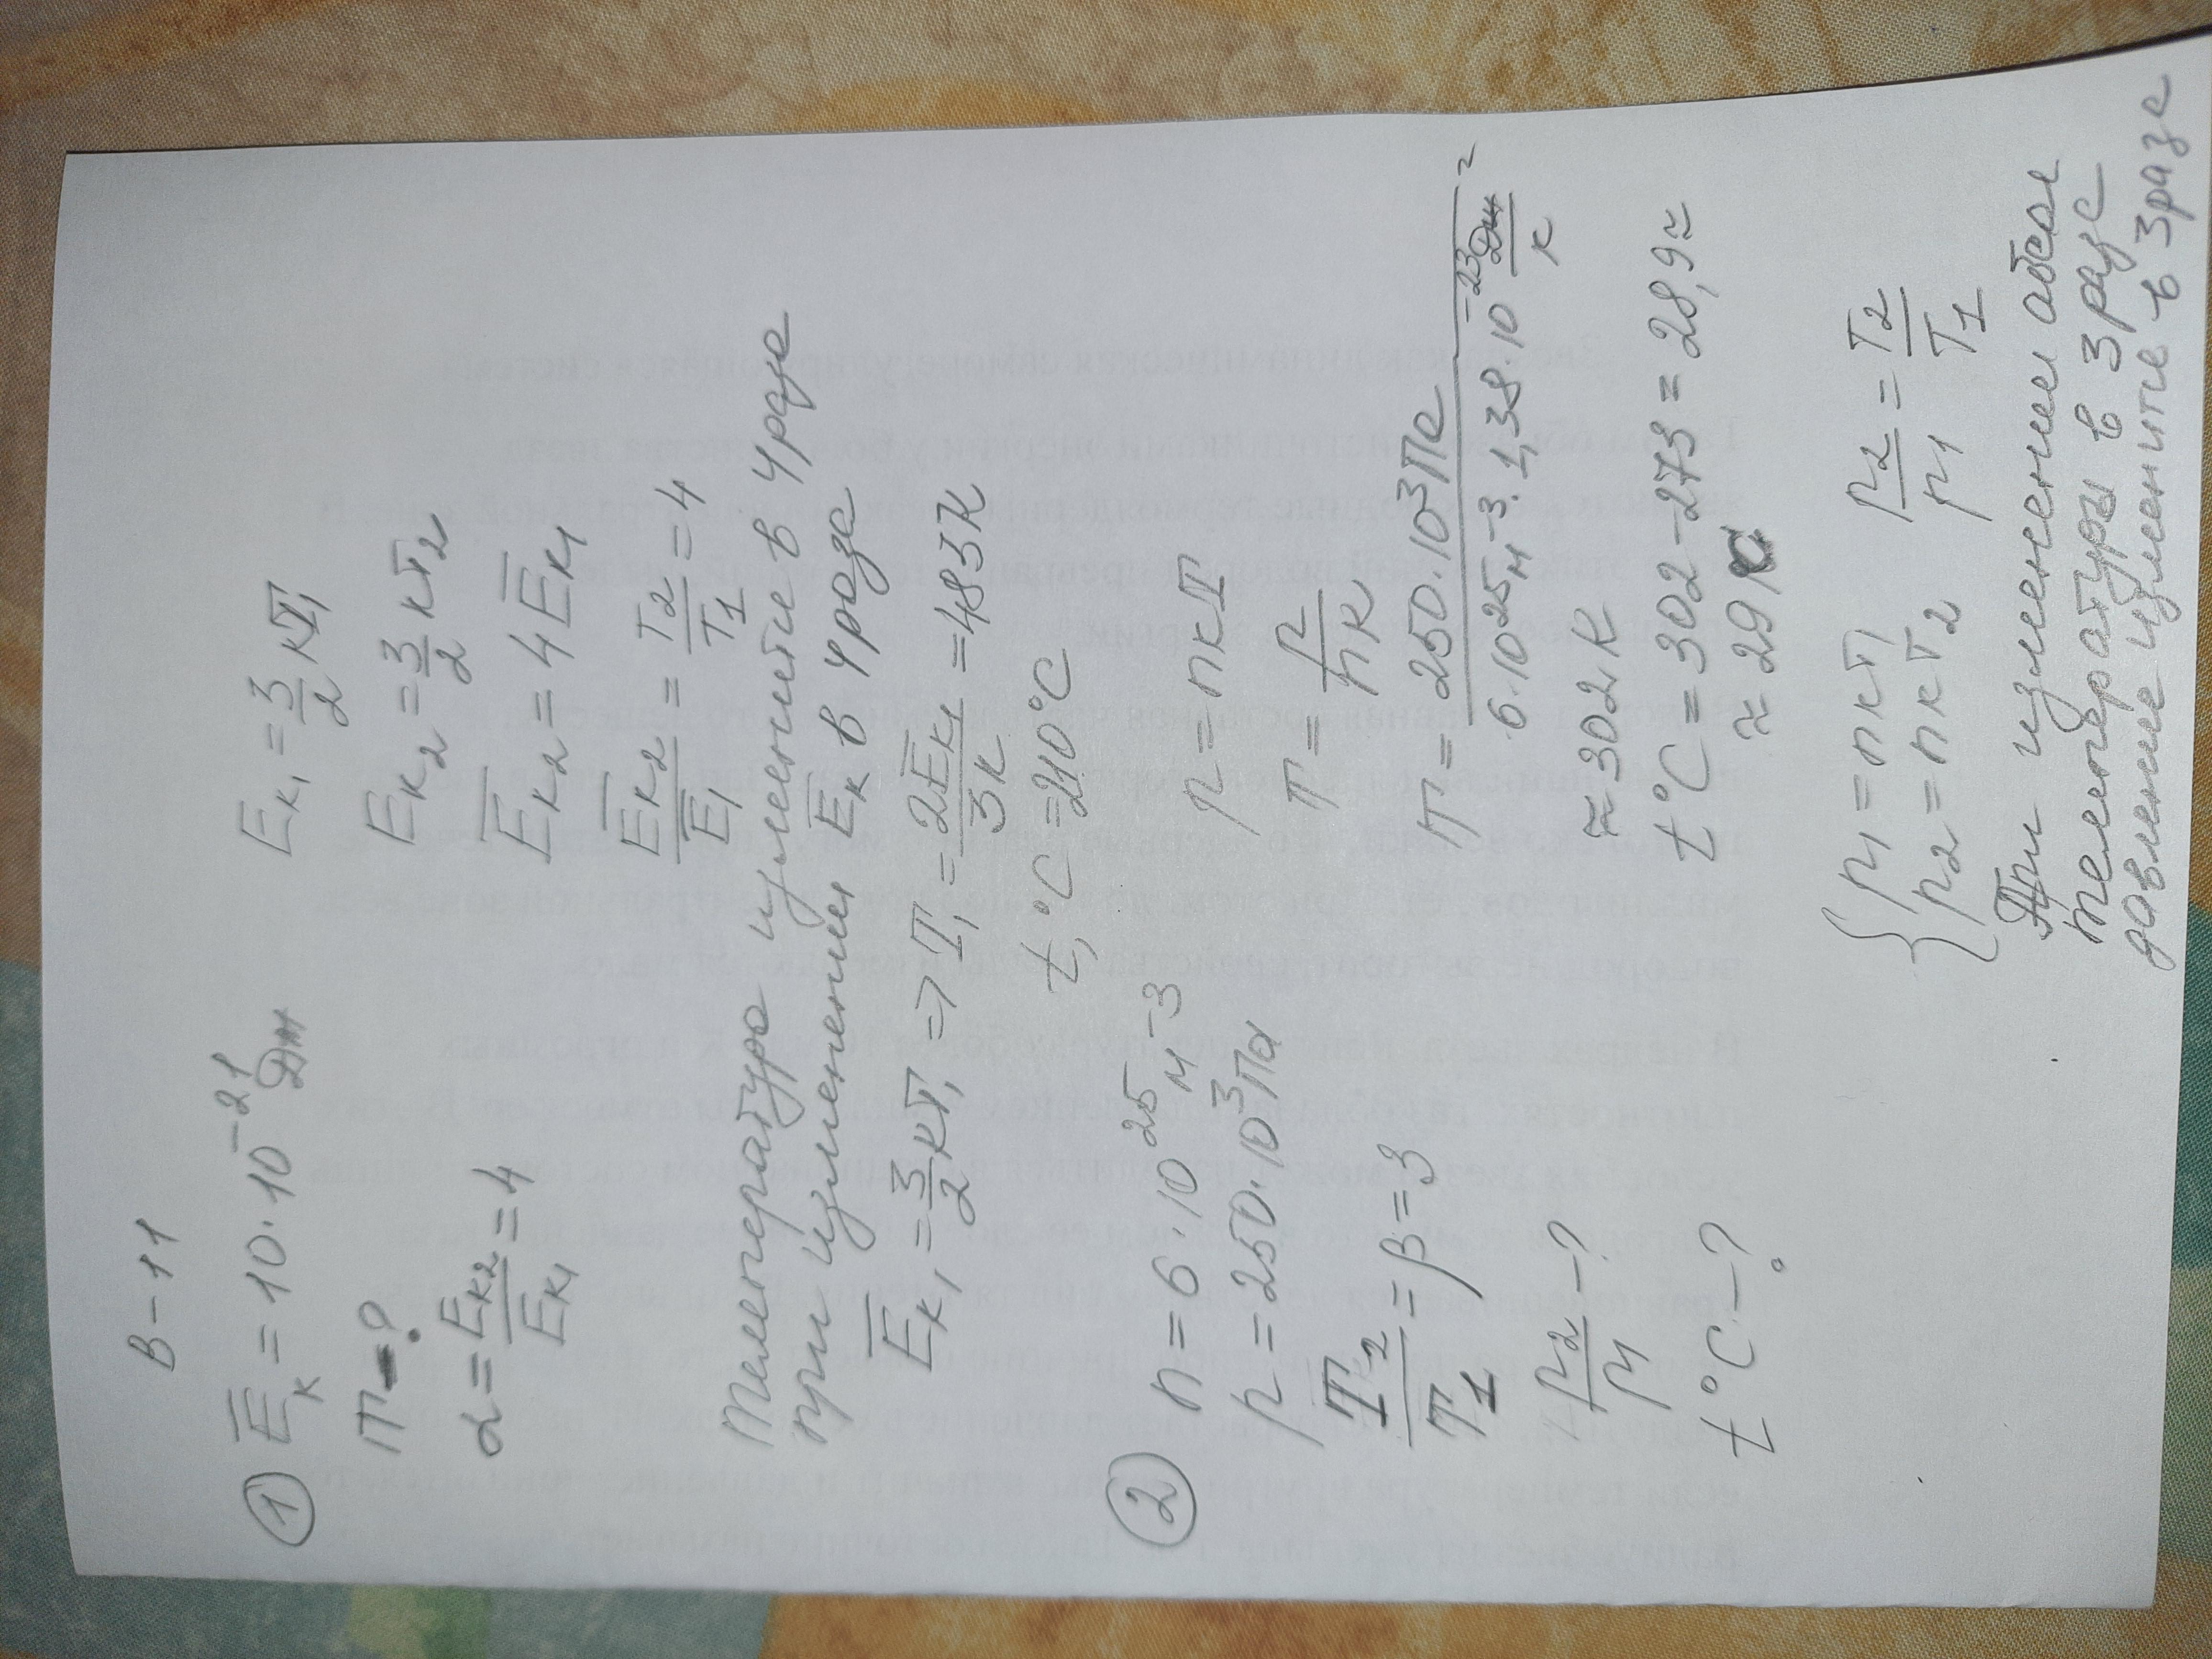 В-11
① E̅к = 10·10⁻²¹ Дж
T-?
α = Eк₂/Eк₁ = 4
Eк₁ = 3/2 кT₁
Eк₂ = 3/2 кT₂
E̅к₂ = 4E̅к₁
E̅к₂/E̅₁ = T₂/T₁ = 4
Температура изменится в 4 раза
при изменении E̅к в 4 раза
E̅к₁ = 3/2 кT₁ => T₁ = 2E̅к₁/3к = 483К
t₁°C = 210°C
② n = 6·10²⁵ м⁻³
p = 250·10³ Па
T₂/T₁ = β = 3
p₂/p₁ - ?
t°C - ?
p = nкT
T = p/nк
T = 250·10³Па/6·10²⁵м⁻³·1,38·10⁻²³ Дж/к ≈
≈ 302К
t°C = 302-273 = 28,9 ≈
≈ 29
{ p₁ = nкT₁
p₂ = nкT₂
p₂/p₁ = T₂/T₁
При изменении абсол
температуры в 3 раза
давление изменится в 3 раза